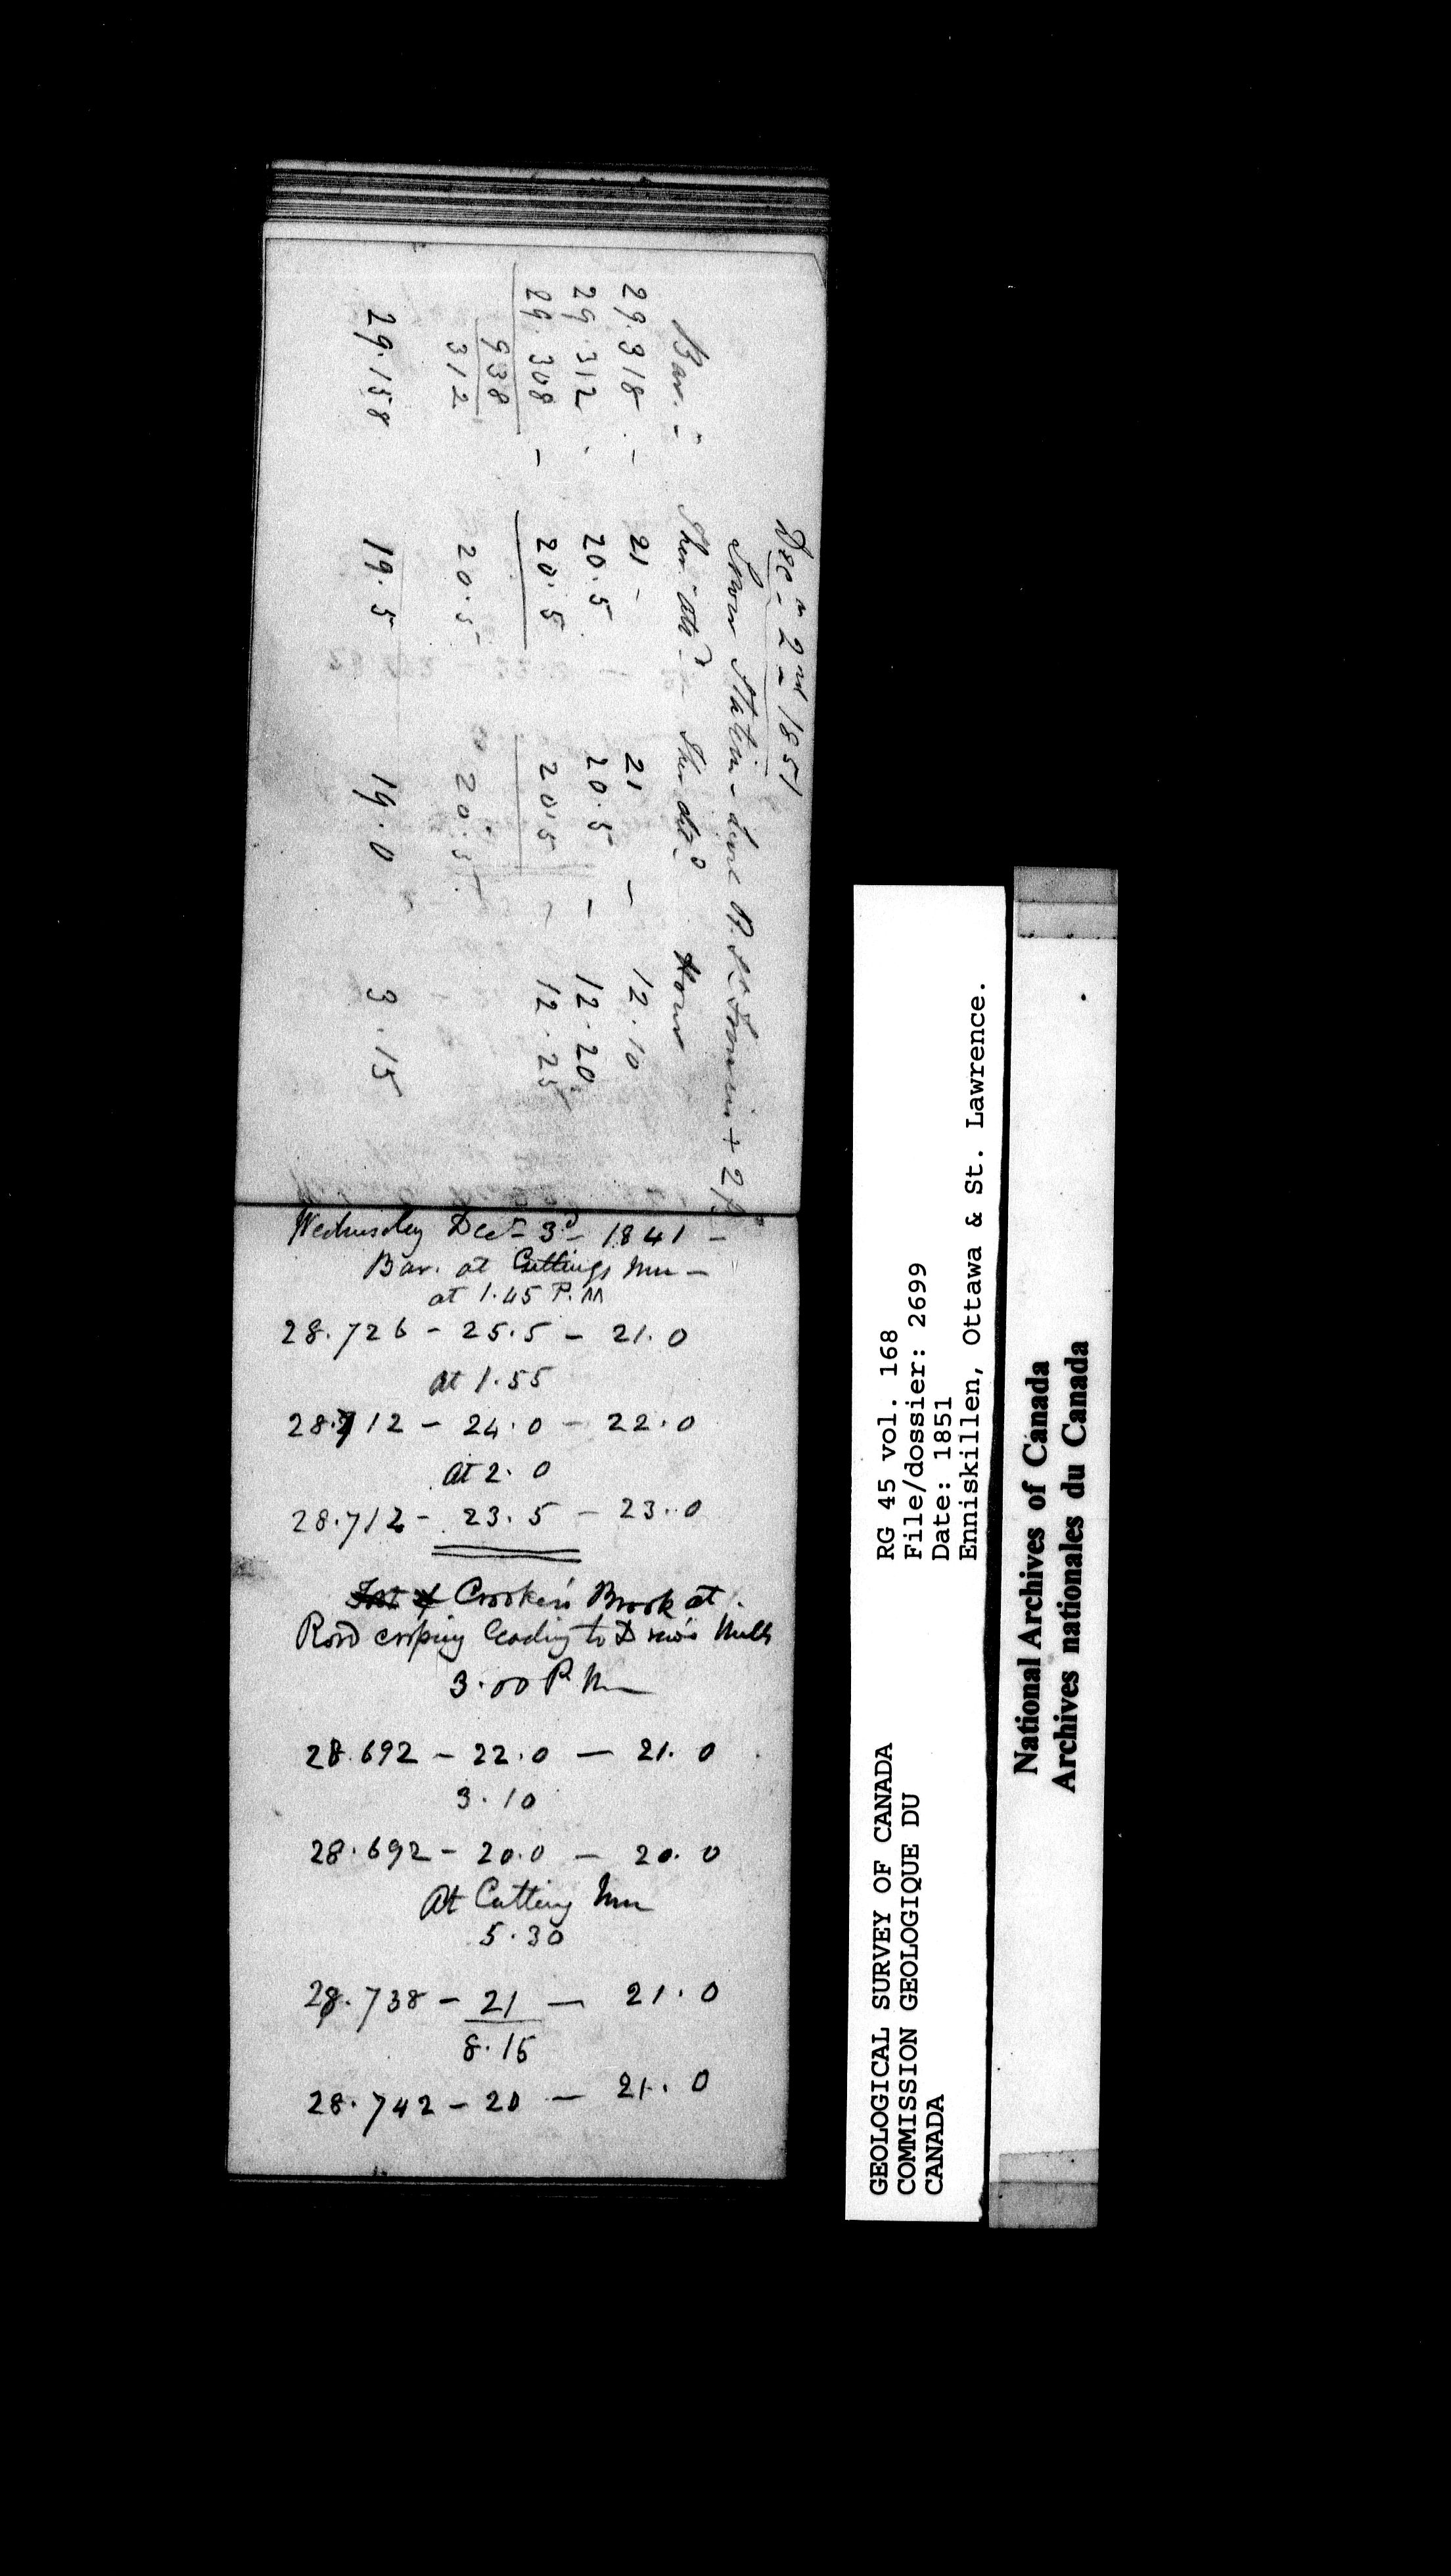 Decr 2nd 1851
Lower Station - level R. St Francis + 2 ft
Bar. - Ther attd - Ther detd Hour
29.318 - 21 - 21 - 12.10
29.312 - 20.5 20.5 - 12.20
29.308 - 20.5 20.5 12.25
938
312 20.5 20.5
29.158 19.5 19.0 3.15
Wednesday Decr 3d 1841 -
Bar. at Cuttings Inn -
at 1.45 P.M
28.726 - 25.5 - 21.0
at 1.55
28.712 - 24.0 - 22.0
at 2.0
28.712 - 23.5 - 23.0
Crooker's Brook at
Road leading to Drew's Mills
3.00 P.M
28.692 - 22.0 - 21.0
3.10
28.692 - 20.0 - 20.0
At Cutting Inn
5.30
28.738 - 21 - 21.0
8.15
28.742 - 20 - 21.0
GEOLOGICAL SURVEY OF CANADA
COMMISSION GEOLOGIQUE DU
CANADA
RG 45 vol. 168
File/dossier: 2699
Date: 1851
Enniskillen, Ottawa & St. Lawrence.
National Archives of Canada
Archives nationales du Canada